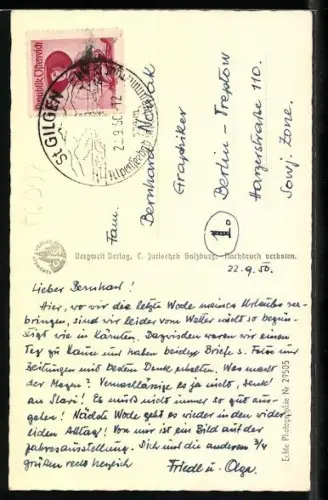 Republik Österreich
ST. GILGEN
2 .9.50-12
Fam.
Bernhard Nowak
Graphiker
Berlin-Treptow
Harzerstraße 110.
Sowj. Zone.
1.
Bergwelt Verlag, C. Jurischek Salzburg. Nachdruck verboten.
Echte Photographie Nr 29505
22.9.50.
Lieber Bernhard!
Hier, wo wir die letzte Woche meines Urlaubs ver-
bringen, sind wir leider vom Wetter nicht so begün-
stigt wie in Kärnten. Dazwischen waren wir einen
Tag zu Hause und haben beiden Briefe s. Fotos und
Zeitungen mit bestem Dank erhalten. Was macht
der Magen? Vernachlässige es ja nicht, denk'
an Slavi! Es muß nicht immer so gut aus-
gehen! Nächste Woche geht es wieder in den wider-
lichen Alltag! Von mir ist ein Bild auf der
Jahresausstellung. Dich und die anderen 3/4
grüßen recht herzlich
Friedl u. Olga.